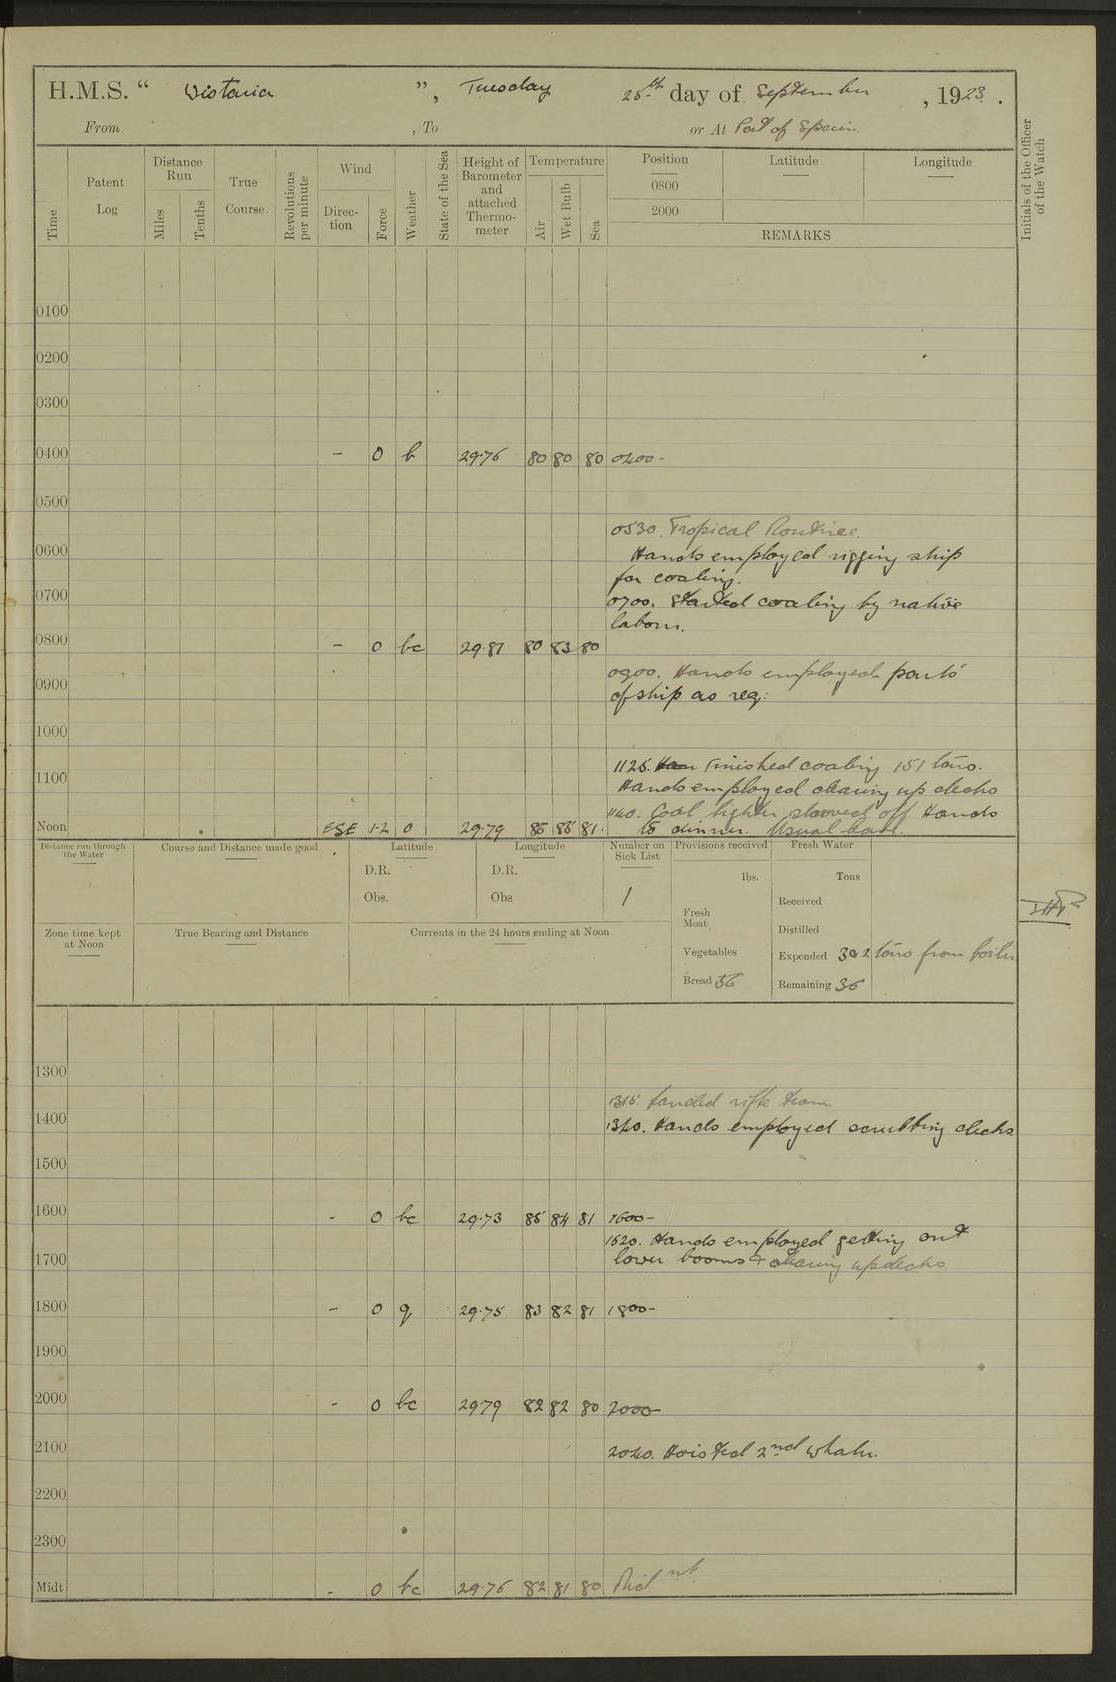 H.M.S. “ Wistaria ”, Tuesday 25th day of September, 1923.
From , To or At Port of Spain
Time
Patent Log
Distance Run
Miles
Tenths
True Course
Revolutions per minute
Wind
Direc-tion
Force
Weather
State of the Sea
Height of Barometer and attached Thermo-meter
Temperature
Air
Wet Bulb
Sea
Position
0800
2000
Latitude
Longitude
REMARKS
Initials of the Officer of the Watch
0100
0200
0300
0400 - 0 b 29.76 80 80 80 0400-
0500
0530. Tropical Routine.
0600 Hands employed rigging ship
for coaling.
0700 0700. Started coaling by native
labour.
0800 - 0 bc 29.81 80 83 80
0900. Hands employed parts
0900 of ship as req:
1000
1125. Finished coaling 151 tons.
1100 Hands employed clearing up decks
1140. Coal lighter shoved off Hands
Noon ESE 1-2 0 29.79 85 81. to dinner. Usual leave.
Distance run through the Water
Course and Distance made good
Latitude
D.R.
Obs.
Longitude
D.R.
Obs.
Number on Sick List
1
Provisions received
lbs.
Fresh Meat
Vegetables
Bread 56
Fresh Water
Tons
Received
Distilled
Expended 3 2 tons from boiler
Remaining 36
Zone time kept at Noon
True Bearing and Distance
Currents in the 24 hours ending at Noon
1300
1315. Landed rifle team
1400 1340. Hands employed scrubbing decks
1500
1600 - 0 bc 29.73 85 84 81 1600-
1620. Hands employed getting out
1700 lower booms & clearing up decks.
1800 - 0 q 29.75 83 82 81 1800-
1900
2000 - 0 bc 29.79 82 82 80 2000-
2100 2040. Hoisted 2nd whaler.
2200
2300
Midt - 0 bc 29.76 82 81 80 Mid nt